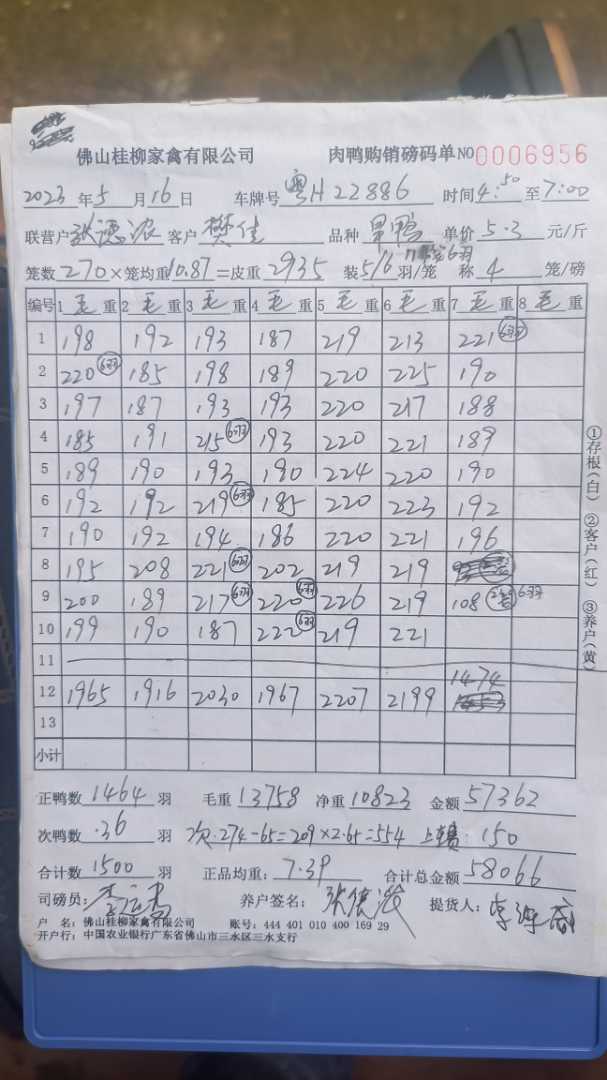 佛山桂柳家禽有限公司 肉鸭购销磅码单 NO 0006956
2023 年 5 月 16 日 车牌号 粤H22886 时间 4:50 至 7:00
联营户 张德浓 客户 樊佳 品种 单价 5.3 元/斤
6羽
笼数 270 × 笼均重 10.87 = 皮重 2935 装 5/6 羽/笼 称 4 笼/磅
编号 1 毛 重 2 毛 重 3 毛 重 4 毛 重 5 毛 重 6 毛 重 7 毛 重 8 毛 重
1 198 192 193 187 219 213 221 6羽
2 220 6羽 185 198 189 220 225 190
3 197 187 193 193 220 217 188
4 185 191 215 6羽 193 220 221 189
5 189 190 193 190 224 220 190
6 192 192 219 6羽 185 220 223 192
7 190 192 194 186 220 221 196
8 195 208 221 6羽 202 219 219
9 200 189 217 6羽 220 6羽 226 219 108 6羽
10 199 190 187 222 6羽 219 221
11
12 1965 1916 2030 1967 2207 2199 1474
13
小计
正鸭数 1464 羽 毛重 13758 净重 10823 金额 57362
次鸭数 36 羽 次:274-65=209×2.65=554 150
合计数 1500 羽 正品均重: 7.39 合计总金额 58066
司磅员: 养户签名: 提货人:
户 名: 佛山桂柳家禽有限公司 账号: 444 401 010 400 169 29
开户行: 中国农业银行广东省佛山市三水区三水支行
①存根(白) ②客户(红) ③养户(黄)